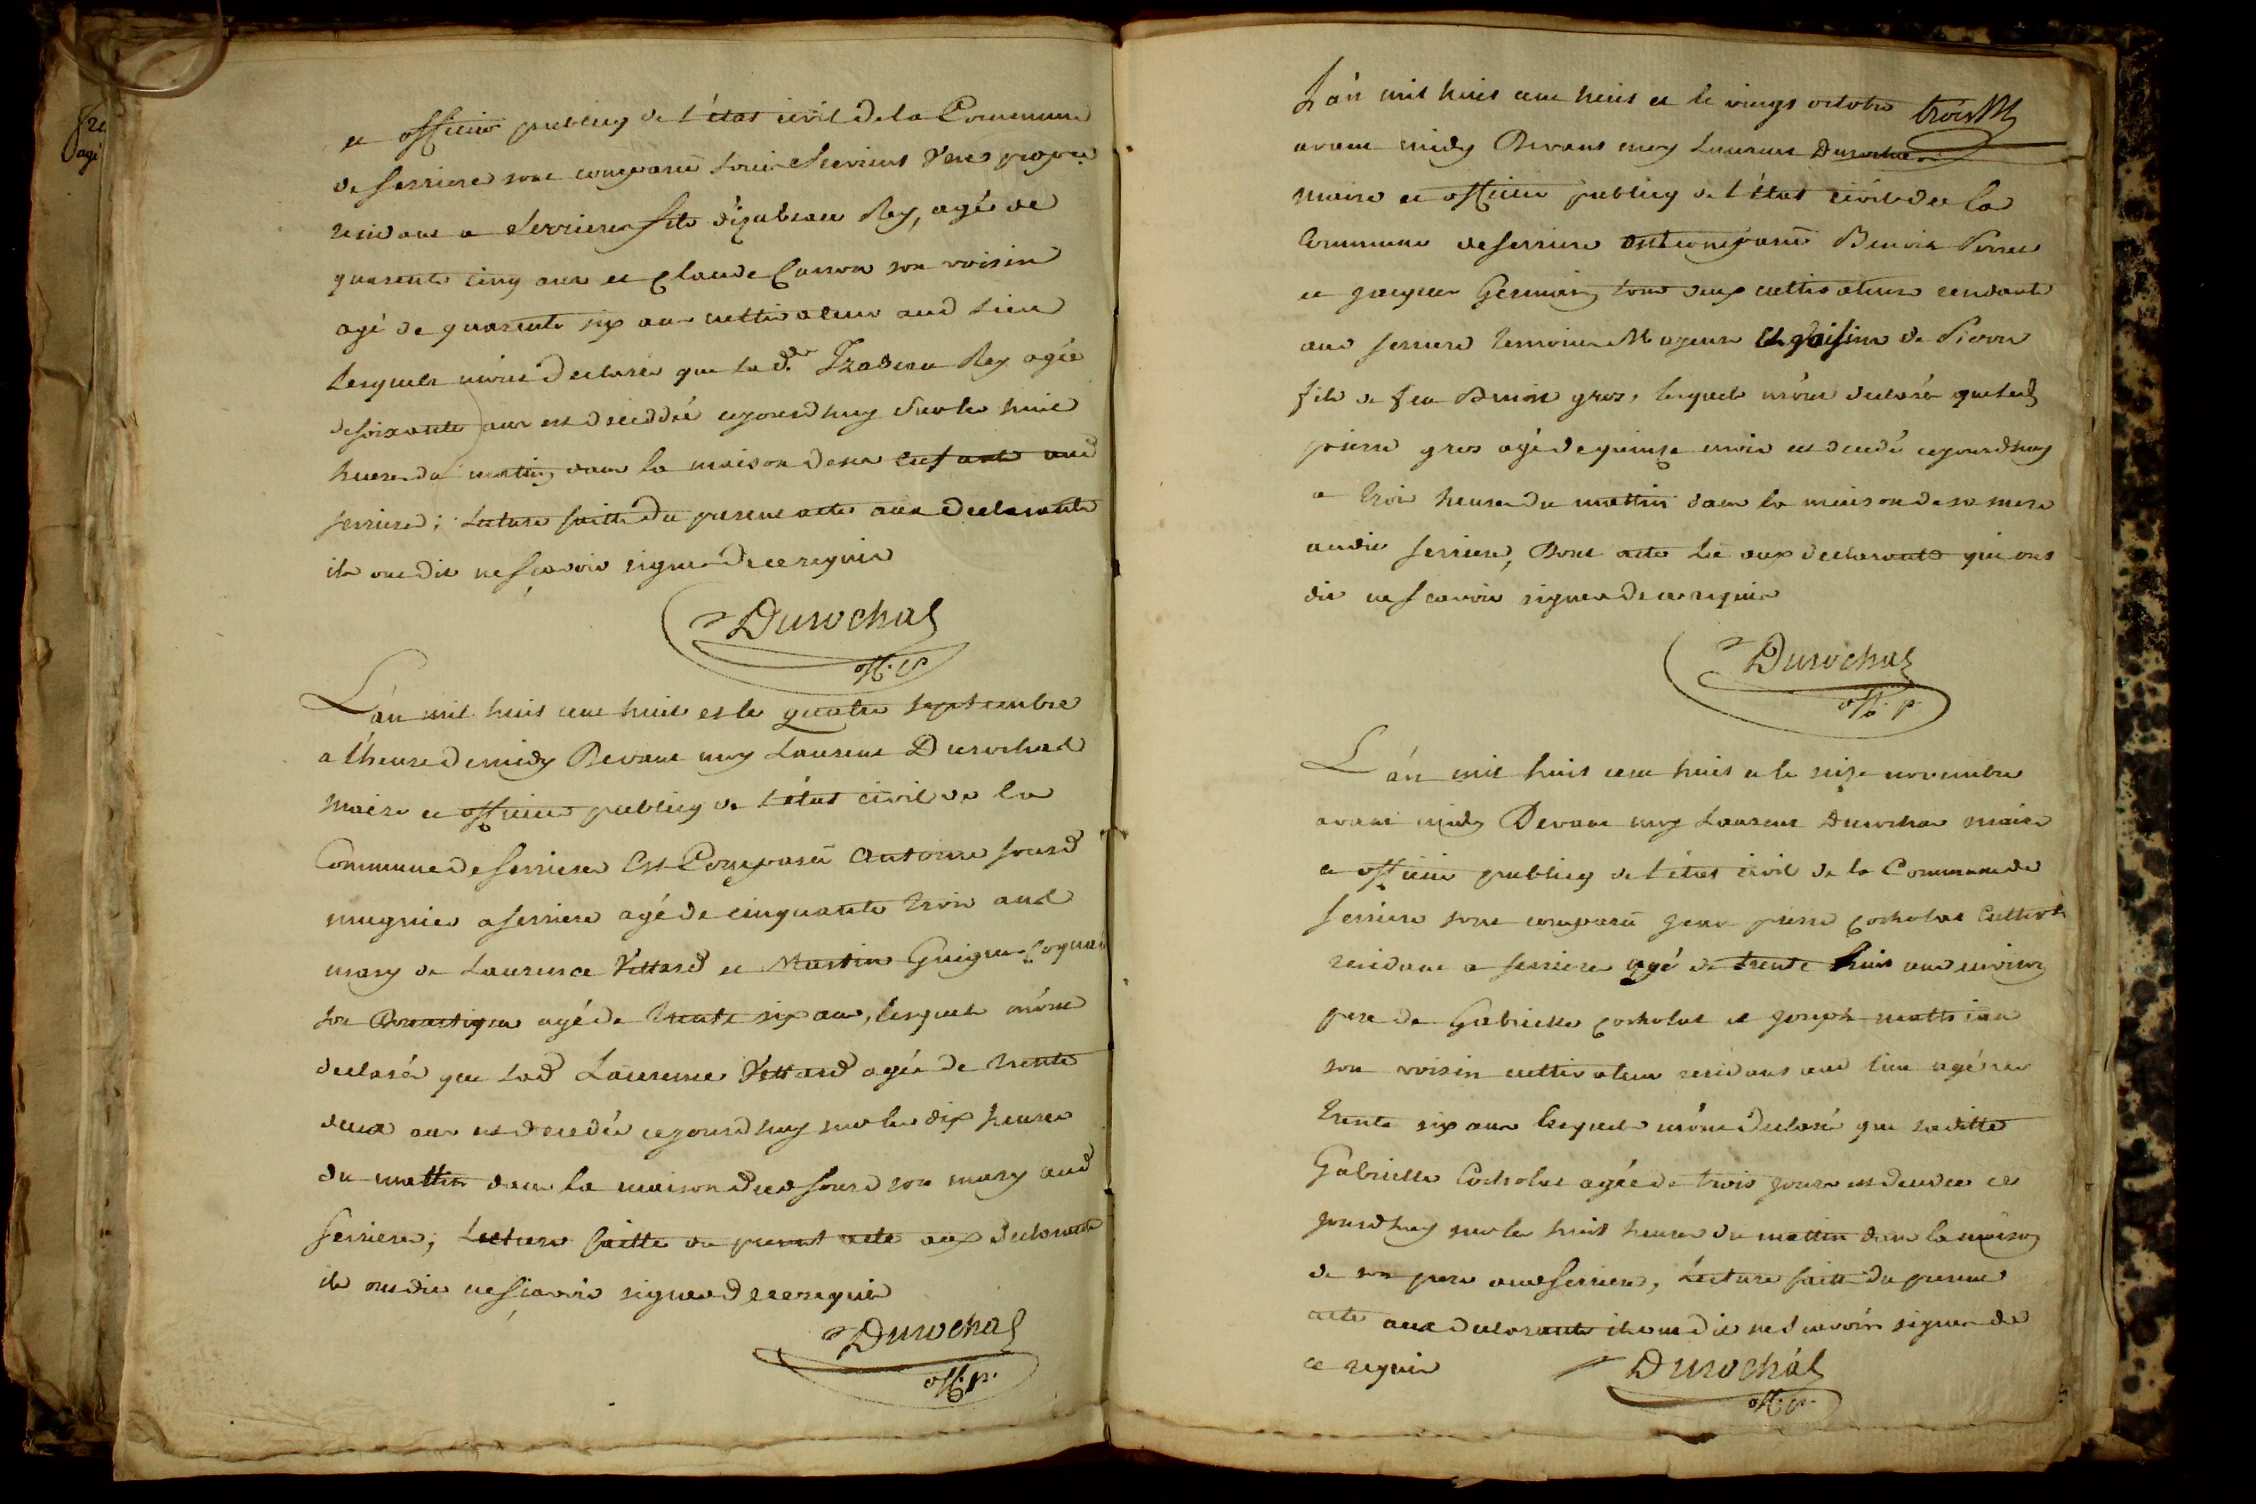 et officier publicq de l'état civil de la Commune
de serriere sont comparu Louis Servient Veres propre
residant a serriere fils d'izabeau Rey, agé de
quarente cinq ans et Claude Carron son voisin
agé de quarente six ans cultivateur aud lieu
lesquels m'ont declarés que lad.e Izabeau Rey agée
de soixante ans est deceddée cejourdhuy sur les huit
heures du mattin dans la maison de ses enfants aud
serriere; lecture faitte du present acte aux declarants
ils ont dit ne sçavoir signer de ce requis
Durochat
off. p.
L'an mil huit cent huit et le quatre septembre
a l'heure de midy Devant moy Laurent Durochat
Maire et officier publicq de l'état civil de la
Commune de serriere Est Comparu Antoine sourd
mugnier a serriere agé de cinquante trois ans
mary de Laurence Vettard et Martin Guigue Coquaz
son Domestique agé de trente six ans, lesquels m'ont
declarés que lad Laurence Vettard agée de trente
deux ans est decedée cejourdhuy sur les dix heures
du mattin dans la maison dud sourd son mary aud
serriere; Lecture faitte du present acte aux declarants
ils ont dit ne sçavoir signer de ce requis
Durochat
off. p.
L'an mil huit cent huit et le vingt octobre trois M
avant midy Devant moy Laurent Durochat
maire et officier publicq de l'état civil de la
Commune de serriere ont comparu Benoit Perret
et Jacques Germain tous deux cultivateurs residants
aud serriere temoins Majeurs Et voisins de Pierre
fils de feu Benoit gros, lesquels m'ont declarés que led
pierre gros agé de quinze mois est decedé cejourdhuy
a trois heures du mattin dans la maison de sa mere
audit serriere, Dont acte lu aux declarants qui ont
dit ne scavoir signer de ce requis
Durochat
off. p.
L'an mil huit cent huit et le seize novembre
avant midy Devant moy Laurent Durochat maire
et officier publicq de l'état civil de la Commune de
serriere sont comparu Jean pierre Cocholat Cultivr
residant a serriere agé de trente huit ans environ
pere de Gabrielle Cocholat et Joseph matti
son voisin cultivateur residant aud lieu agé de
trente six ans lesquels m'ont declaré que laditte
Gabrielle Cocholat agée de trois jours est decedee ce
jourdhuy sur les huit heures du mattin dans la maison
de son pere aud serriere, Lecture faitte du present
acte aux declarants ils ont dit ne scavoir signer de
ce requis
Durochat
off. p.